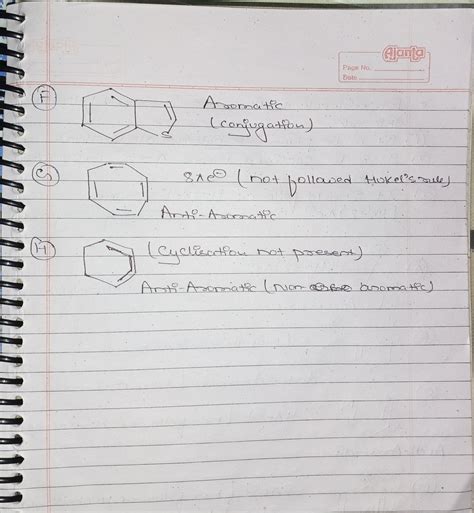 Ajanta
Page No.
Date
F Aromatic
(conjugation)
S
G 8πe⊖ (not followed Hukel's rule)
Anti-Aromatic
H (Cyclisation not present)
Anti-Aromatic (Non aromatic)